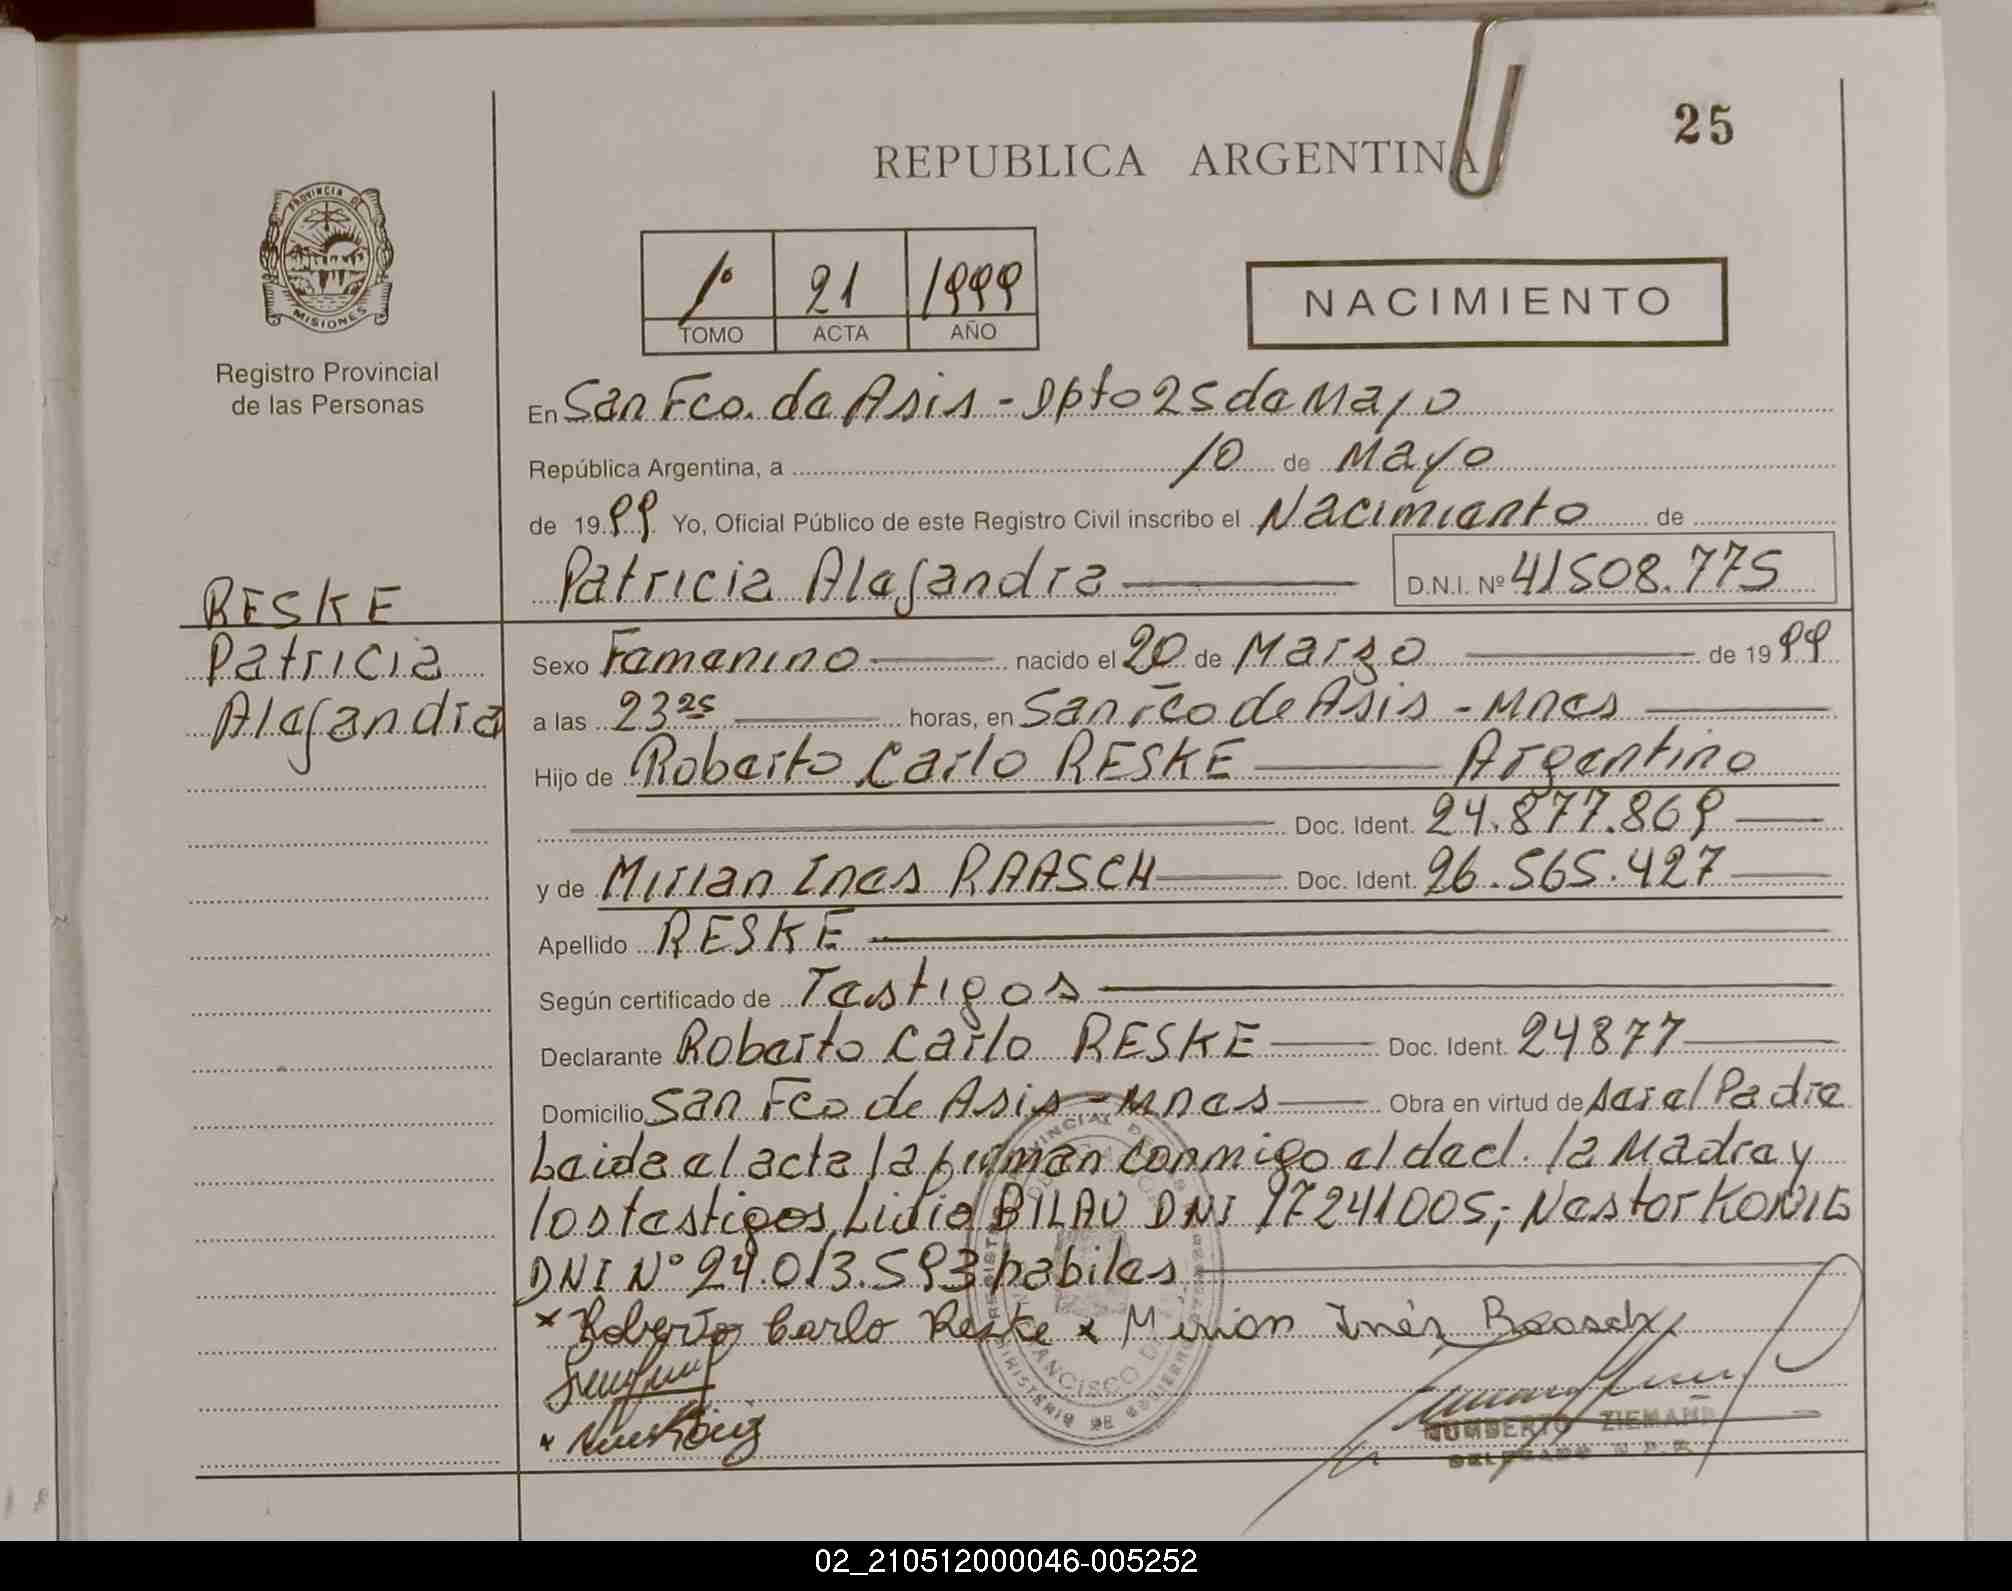 25
REPUBLICA ARGENTINA
PROVINCIA DE
MISIONES
Registro Provincial
de las Personas
1º 21 1999
TOMO ACTA AÑO
NACIMIENTO
En San Fco. de Asis - Dpto 25 de Mayo
República Argentina, a 10 de Mayo
de 1999 Yo, Oficial Público de este Registro Civil inscribo el Nacimiento de
Patricia Alejandra D.N.I. Nº 41508.775
RESKE
Patricia
Alejandra
Sexo Femenino nacido el 20 de Marzo de 1999
a las 23 25 horas, en San Fco de Asis - Mnes
Hijo de Roberto Carlo RESKE Argentino
Doc. Ident. 24.877.869
y de Mirian Ines RAASCH Doc. Ident. 26.565.427
Apellido RESKE
Según certificado de Testigos
Declarante Roberto Carlo RESKE Doc. Ident. 24877
Domicilio San Fco de Asis - Mnes Obra en virtud de ser el Padre
Leida el acta la firman conmigo el decl. la Madre y
los testigos, Lidio BILAU DNI 17241005; Nestor KONIG
DNI Nº 24.013.593 habiles
x Roberto Carlo Reske x Mirian Inés Raasch
HUMBERTO ZIEMANN
DELEGADO R.P.P.
02_210512000046-005252